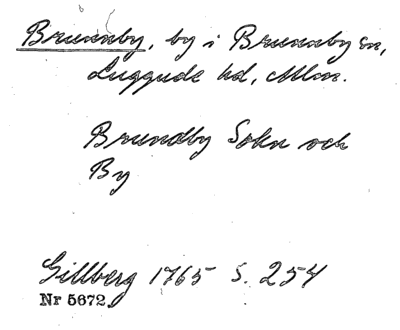 Brunnby, by i Brunnby sn,
Luggude hd, Mlm.
Brundby Sokn och
By
Gillberg 1765 S. 254
Nr 5672